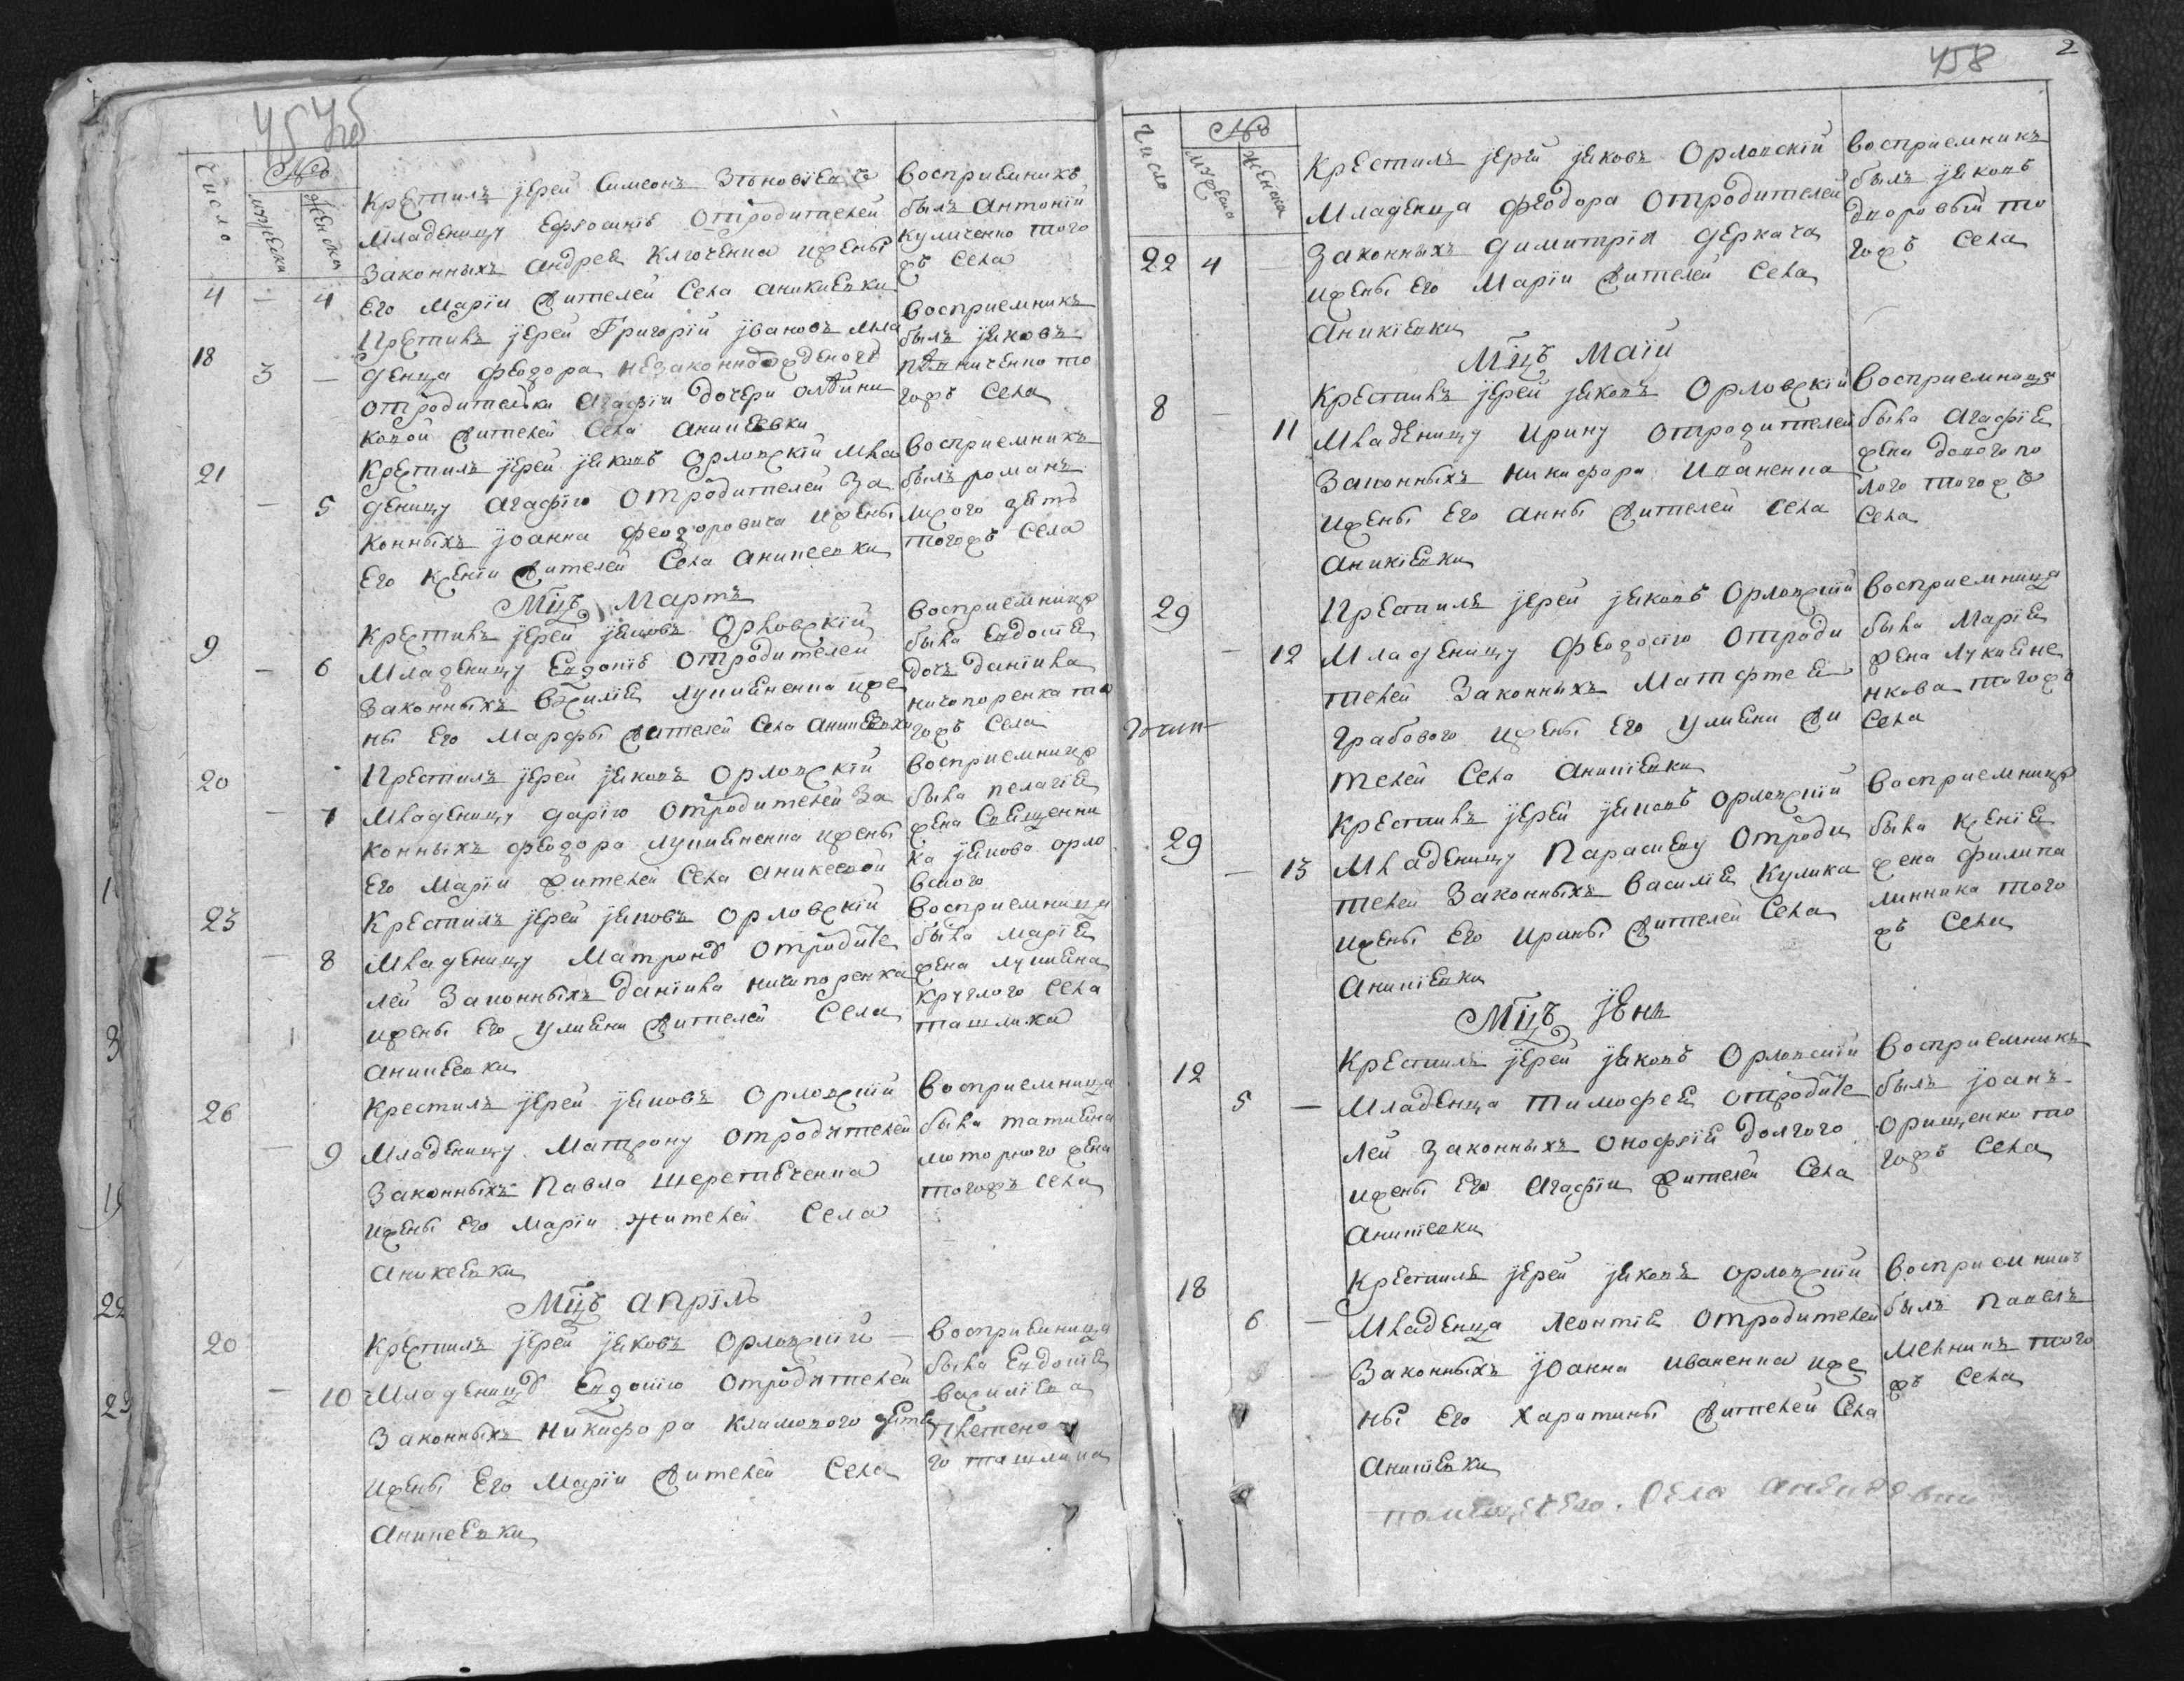 457об
Число
№
мужеска
женска
Крестилъ іерей Симеонъ
Младеницу Отродителей
Законныхъ Андрея Ключенка ижены
Его Маріи жителей Села Аникиевки
Восприемникъ
былъ Антоній
Куличенко того
жъ Села
4 — 4
18 3 —
Крестилъ іерей Григорій Івановъ Мла
денца Феодора незаконнорожденого
отродительки Агафіи дочери
жителей Села Аникеевки
Восприемникъ
былъ Іяковъ
то
гожъ Села
21 — 5
Крестилъ іерей Іяковъ Орловскій Мла
деницу Агафію Отродителей За
конныхъ Іоанна Феодоровича ижены
Его Ксеніи жителей Села Аникеевки
Восприемникъ
былъ романъ
тогожъ Села
Мцъ Мартъ
9 — 6
Крестилъ іерей Іяковъ Орловскій
Младеницу Отродителей
Законныхъ Лукияненка иже
ны Его Марфы жителей Села Аникеевки
Восприемница
была Евдокія
дочь Даніила
ничипоренка то
гожъ Села
20 — 7
Крестилъ іерей Іяковъ Орловскій
Младеницу Дарію Отродителей За
конныхъ Феодора Лукияненка ижены
Его Маріи жителей Села Аникеевки
Восприемница
была Пелагія
жена Священни
ка Іякова Орло
вского
23 — 8
Крестилъ іерей Іяковъ Орловскій
Младеницу Матрону Отродите
лей Законныхъ Даніила ничипоренка
ижены Его Улияни жителей Села
Аникеевки
Восприемница
была Марія
жена Лукияна
Круглого Села
ташлика
26 — 9
Крестилъ іерей Іяковъ Орловскій
Младеницу Матрону Отродителей
Законныхъ Павла Шереметченка
ижены Его Маріи жителей Села
Аникеевки
Восприемница
была татияна
моторного жена
тогожъ Села
Мцъ Апріль
20 — 10
Крестилъ іерей Іяковъ Орловскій —
Младеницу Евдокію Отродителей
Законныхъ Никифора Климового зять
ижены Его Маріи жителей Села
Аникеевки
Восприемница
была Евдокія
василіева
го ташлика
458
2
Число
№
мужеска
женска
22 4
Крестилъ іерей Іяковъ Орловскій
Младенца Феодора Отродителей
Законныхъ Димитрія Деркача
ижены Его Маріи жителей Села
Аникіевки
Восприемникъ
былъ Іяковъ
дворовый то
гожъ Села
Мцъ Маій
8 — 11
Крестилъ іерей Іяковъ Орловскій
Младеницу Ирину Отродителей
Законныхъ Никифора Иваненка
ижены Его Анны жителей Села
Аникіевки
Восприемница
была Агафія
жена
лого тогожъ
Села
29 — 12
Крестилъ іерей Іяковъ Орловскій
Младеницу Феодосію Отроди
телей Законныхъ Матфтея
Грабового ижены Его Улияни жи
телей Села Аникіевки
Восприемница
была Марія
жена Лукияне
нкова тогожъ
Села
29 — 13
Крестилъ іерей Іяковъ Орловскій
Младеницу Параскеву Отроди
телей Законныхъ Василія Кулика
ижены Его Ирины жителей Села
Аникіевки
Восприемница
была Ксенія
жена Филипа
линника того
жъ Села
Мцъ Іюнь
12 5 —
Крестилъ іерей Іяковъ Орловскій
Младенца Тимофея Отродите
лей Законныхъ Онофрія Долгого
ижены Его Агафіи жителей Села
Аникіевки
Восприемникъ
былъ Іоанъ
Орищенко то
гожъ Села
18 6 —
Крестилъ іерей Іяковъ Орловскій
Младенца Леонтія Отродителей
Законныхъ Іоанна Иваненка иже
ны Его Харитины жителей Села
Аникіевки
Восприемникъ
былъ Павелъ
Мелникъ того
жъ Села
Села